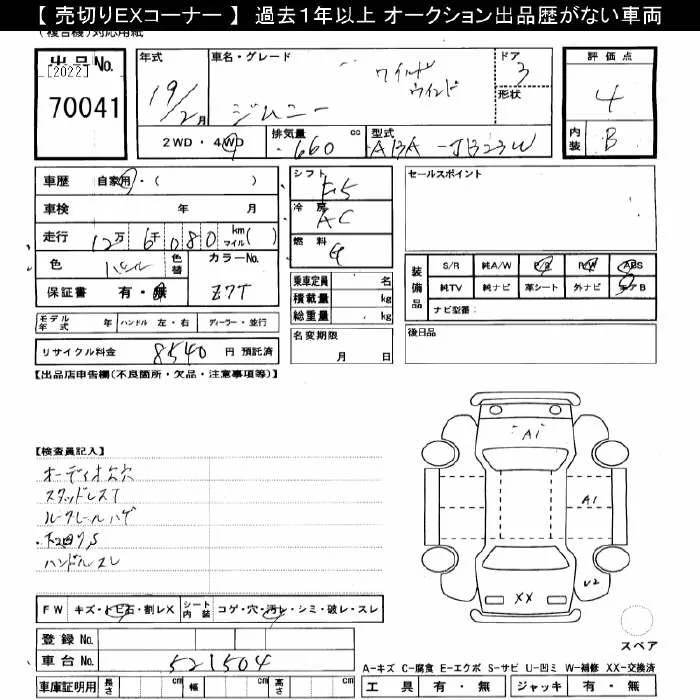 【 売切りEXコーナー 】 過去1年以上 オークション出品歴がない車両
(複合機)対応用紙
出品No.
[2022]
70041
年式
19/2月
車名・グレード
ワイルド
ウインド
ジムニー
ドア
3
形状
2WD・4WD
排気量
660
cc
型式
ABA-JB23W
評価点
4
内装
B
車歴
自家用・( )
車検
年 月
走行
12万 6千 080 km マイル( )
色
パール
色替
カラーNo.
Z7T
保証書
有・無
モデル年式
年
ハンドル 左・右
ディーラー・並行
リサイクル料金
8540 円 預託済
シフト
F5
冷房
AC
燃料
G
乗車定員 名
積載量 kg
総重量 kg
名変期限
月 日
セールスポイント
装備品
S/R 純A/W P/S P/W ABS
純TV 純ナビ 革シート 外ナビ エアB
ナビ型番:
後日品
【出品店申告欄(不良箇所・欠品・注意事項等)】
【検査員記入】
オーディオ欠穴
スタッドレスT
ルーフレールハゲ
下回りS
ハンドルスレ
A1
A1
U2
XX
スペア
FW キズ・トビ石・割レX
シート内装 コゲ・穴・汚レ・シミ・破レ・スレ
登録No.
車台No.
521504
車庫証明用 長さ cm 幅 cm 高さ cm
A-キズ C-腐食 E-エクボ S-サビ U-凹ミ W-補修 XX-交換済
工具 有・無 ジャッキ 有・無